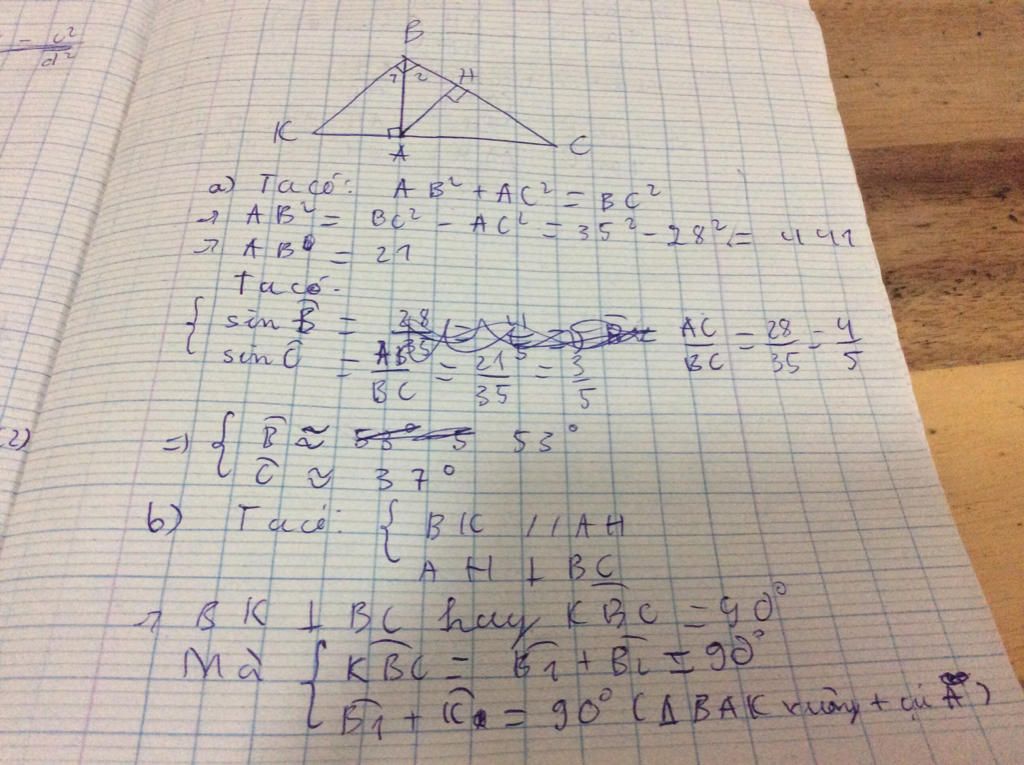 - c²
d²
B
1 2 H
K A C
a) Ta có: AB² + AC² = BC²
→ AB² = BC² - AC² = 35² - 28² = 441
→ AB = 21
Ta có:
{ sin B̂ = AC/BC = 28/35 = 4/5
sin Ĉ = AB/BC = 21/35 = 3/5
2)
=> { B̂ ≈ 53°
Ĉ ≈ 37°
b) Ta có: { BK // AH
AH ⊥ BC
→ BK ⊥ BC hay KB̂C = 90°
Mà { KB̂C = B̂₁ + B̂₂ = 90°
B̂₁ + K̂ = 90° (Δ BAK vuông tại A)